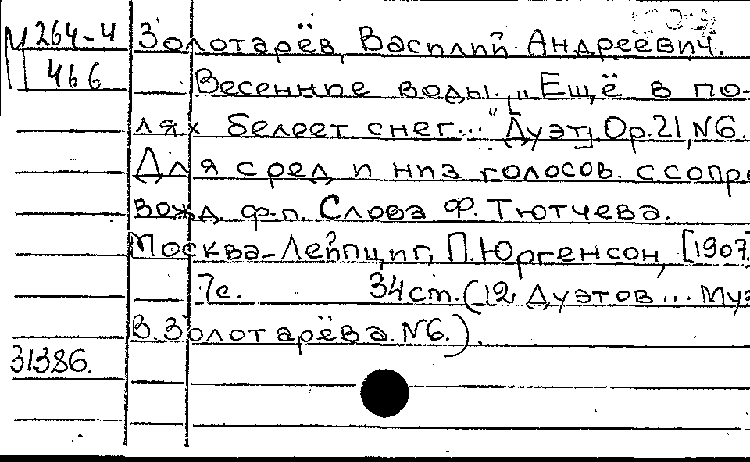 М 264-4
466
Золотарёв, Василий Андреевич.
Весенние воды. „Ещё в по-
лях белеет снег..." [Дуэт]. Ор.21, N6.
Для сред и низ голосов с сопро
вожд ф-п. Слова Ф. Тютчева.
Москва-Лейпциг, П. Юргенсон, [1907]
7с. 34ст. (12 Дуэтов... Муз
В. Золотарёва. N6.).
31386.